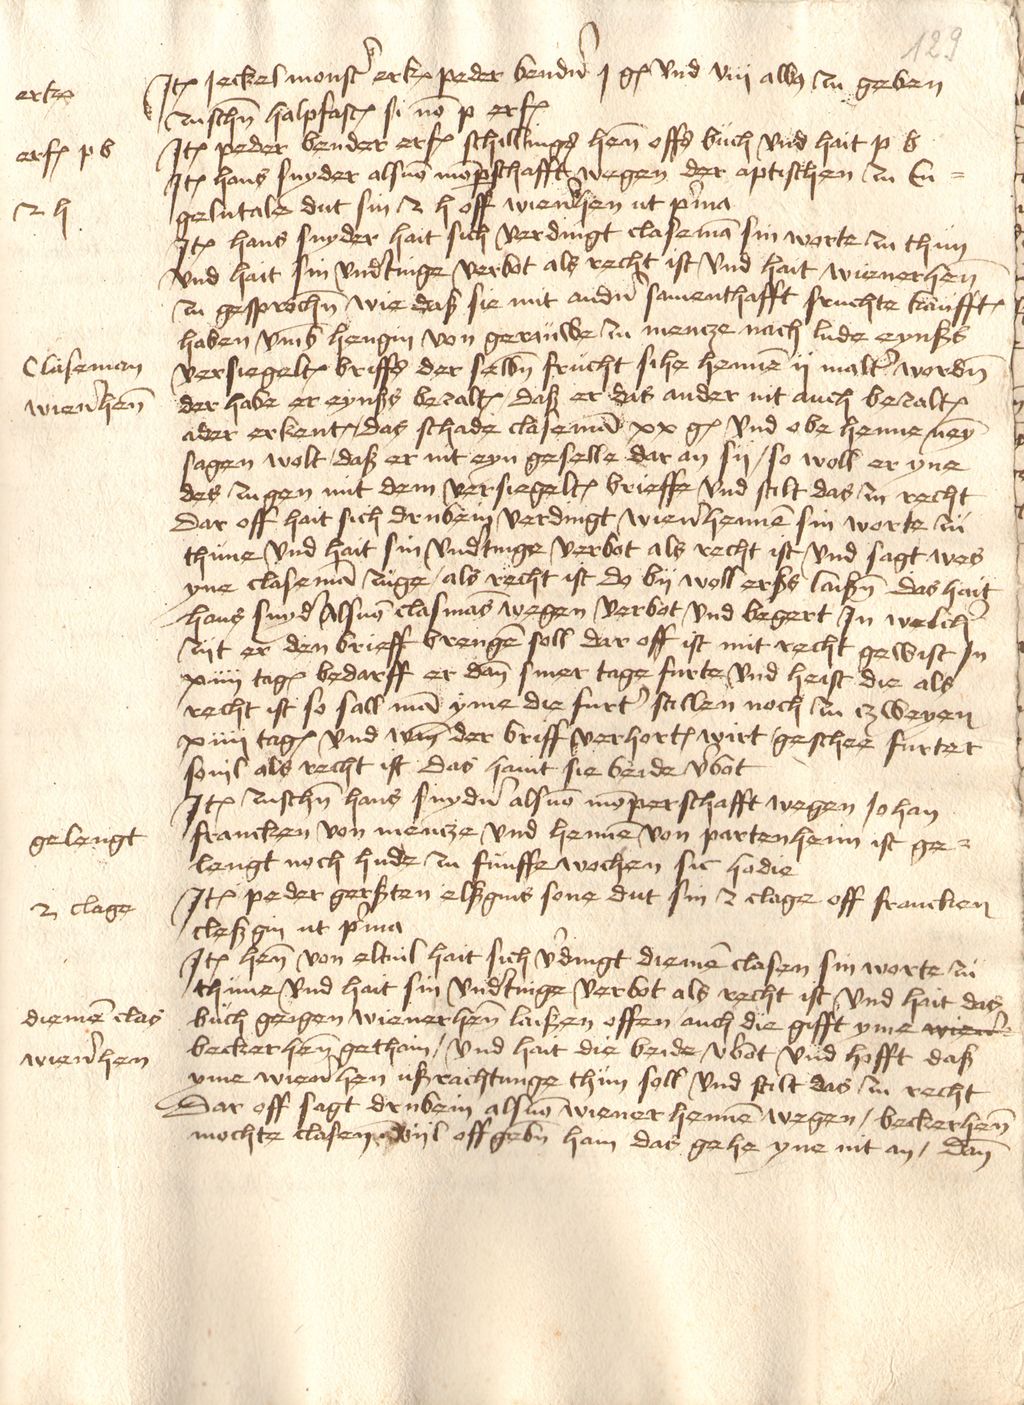 129
erken
Item Jeckel monster erken peder bender j g und viii albus zu geben
zuschen halpfasten si non p erf
erf p b
Item peder bender erf schillings hen offs buch und hait p b
Item hans snyder alsuo mompschafft wegen der aptischen zu En=
2 h
gelntale dut sin 2 h off wienerhen ut prima
Item hans snyder hait sich verdingt claseman sin worte zu thun
und hait sin undertinge verbot als recht ist und hait wienerhen
zu gesprochen wie daß sie mit ander samenthafft fruchte kaufft
haben umb hengin von
zu mencze nach lude eynßs
Claseman
versiegelten briffs der selben frucht sihe henne ii malter worden
wienerhen
der habe er eynßs bezalt daß er das ander nit auch bezalt
ader erkent das schade claseman xx g und obe henne neyn
sagen wolt daß er nit eyn geselle dar an sij / so woll er yne
des zugen mit dem versiegelten brieffe und stilt das zu recht
Dar off hait sich drubein verdingt wienerhennen sin worte zu
thune und hait sin undertinge verbot als recht ist und sagt wes
yne claseman zuge / als recht ist do bij woll erßs laißen das hait
hans snyder alsuo clasmans wegen verbot und begert In welcher
zijt er den brieff brengen soll dar off ist mit recht gewist In
xiiii tagen bedarff er dan siner tage furte und heist die als
recht ist so sall man yme die furter stillen noch zu czweyen
xiiii tagen und wan der briff verhort wirt / geschee furter
sovil als recht ist das haint sie beide verbot
Item zuschen hans snyder alsuo momperschafft wegen Johan
gelengt
francken von mencze und henne von partenheim ist ge=
lengt noch hude zu funffe wochen sic hodie
2 clage
Item peder gerßten elßgins sone dut sin 2 clage off francken
cleßgin ut prima
Item hen von eltuil hait sich verdingt diemen clasen sin worte zu
thune und hait sin undertinge verbot als recht ist und hait das
diemen clas
buch geigen wienerhen laißen offen auch die gifft yme wiener
wienerhen
beckerhen gethain / und hait die beide verbot und hofft daß
yme wienerhen ußrachtunge thun soll und stilt das zu recht
Dar off sagt drubein alsuo wiener hennen wegen / beckerhen
mochte clasen vijl offgeben hain das gehe yne nit an / dan